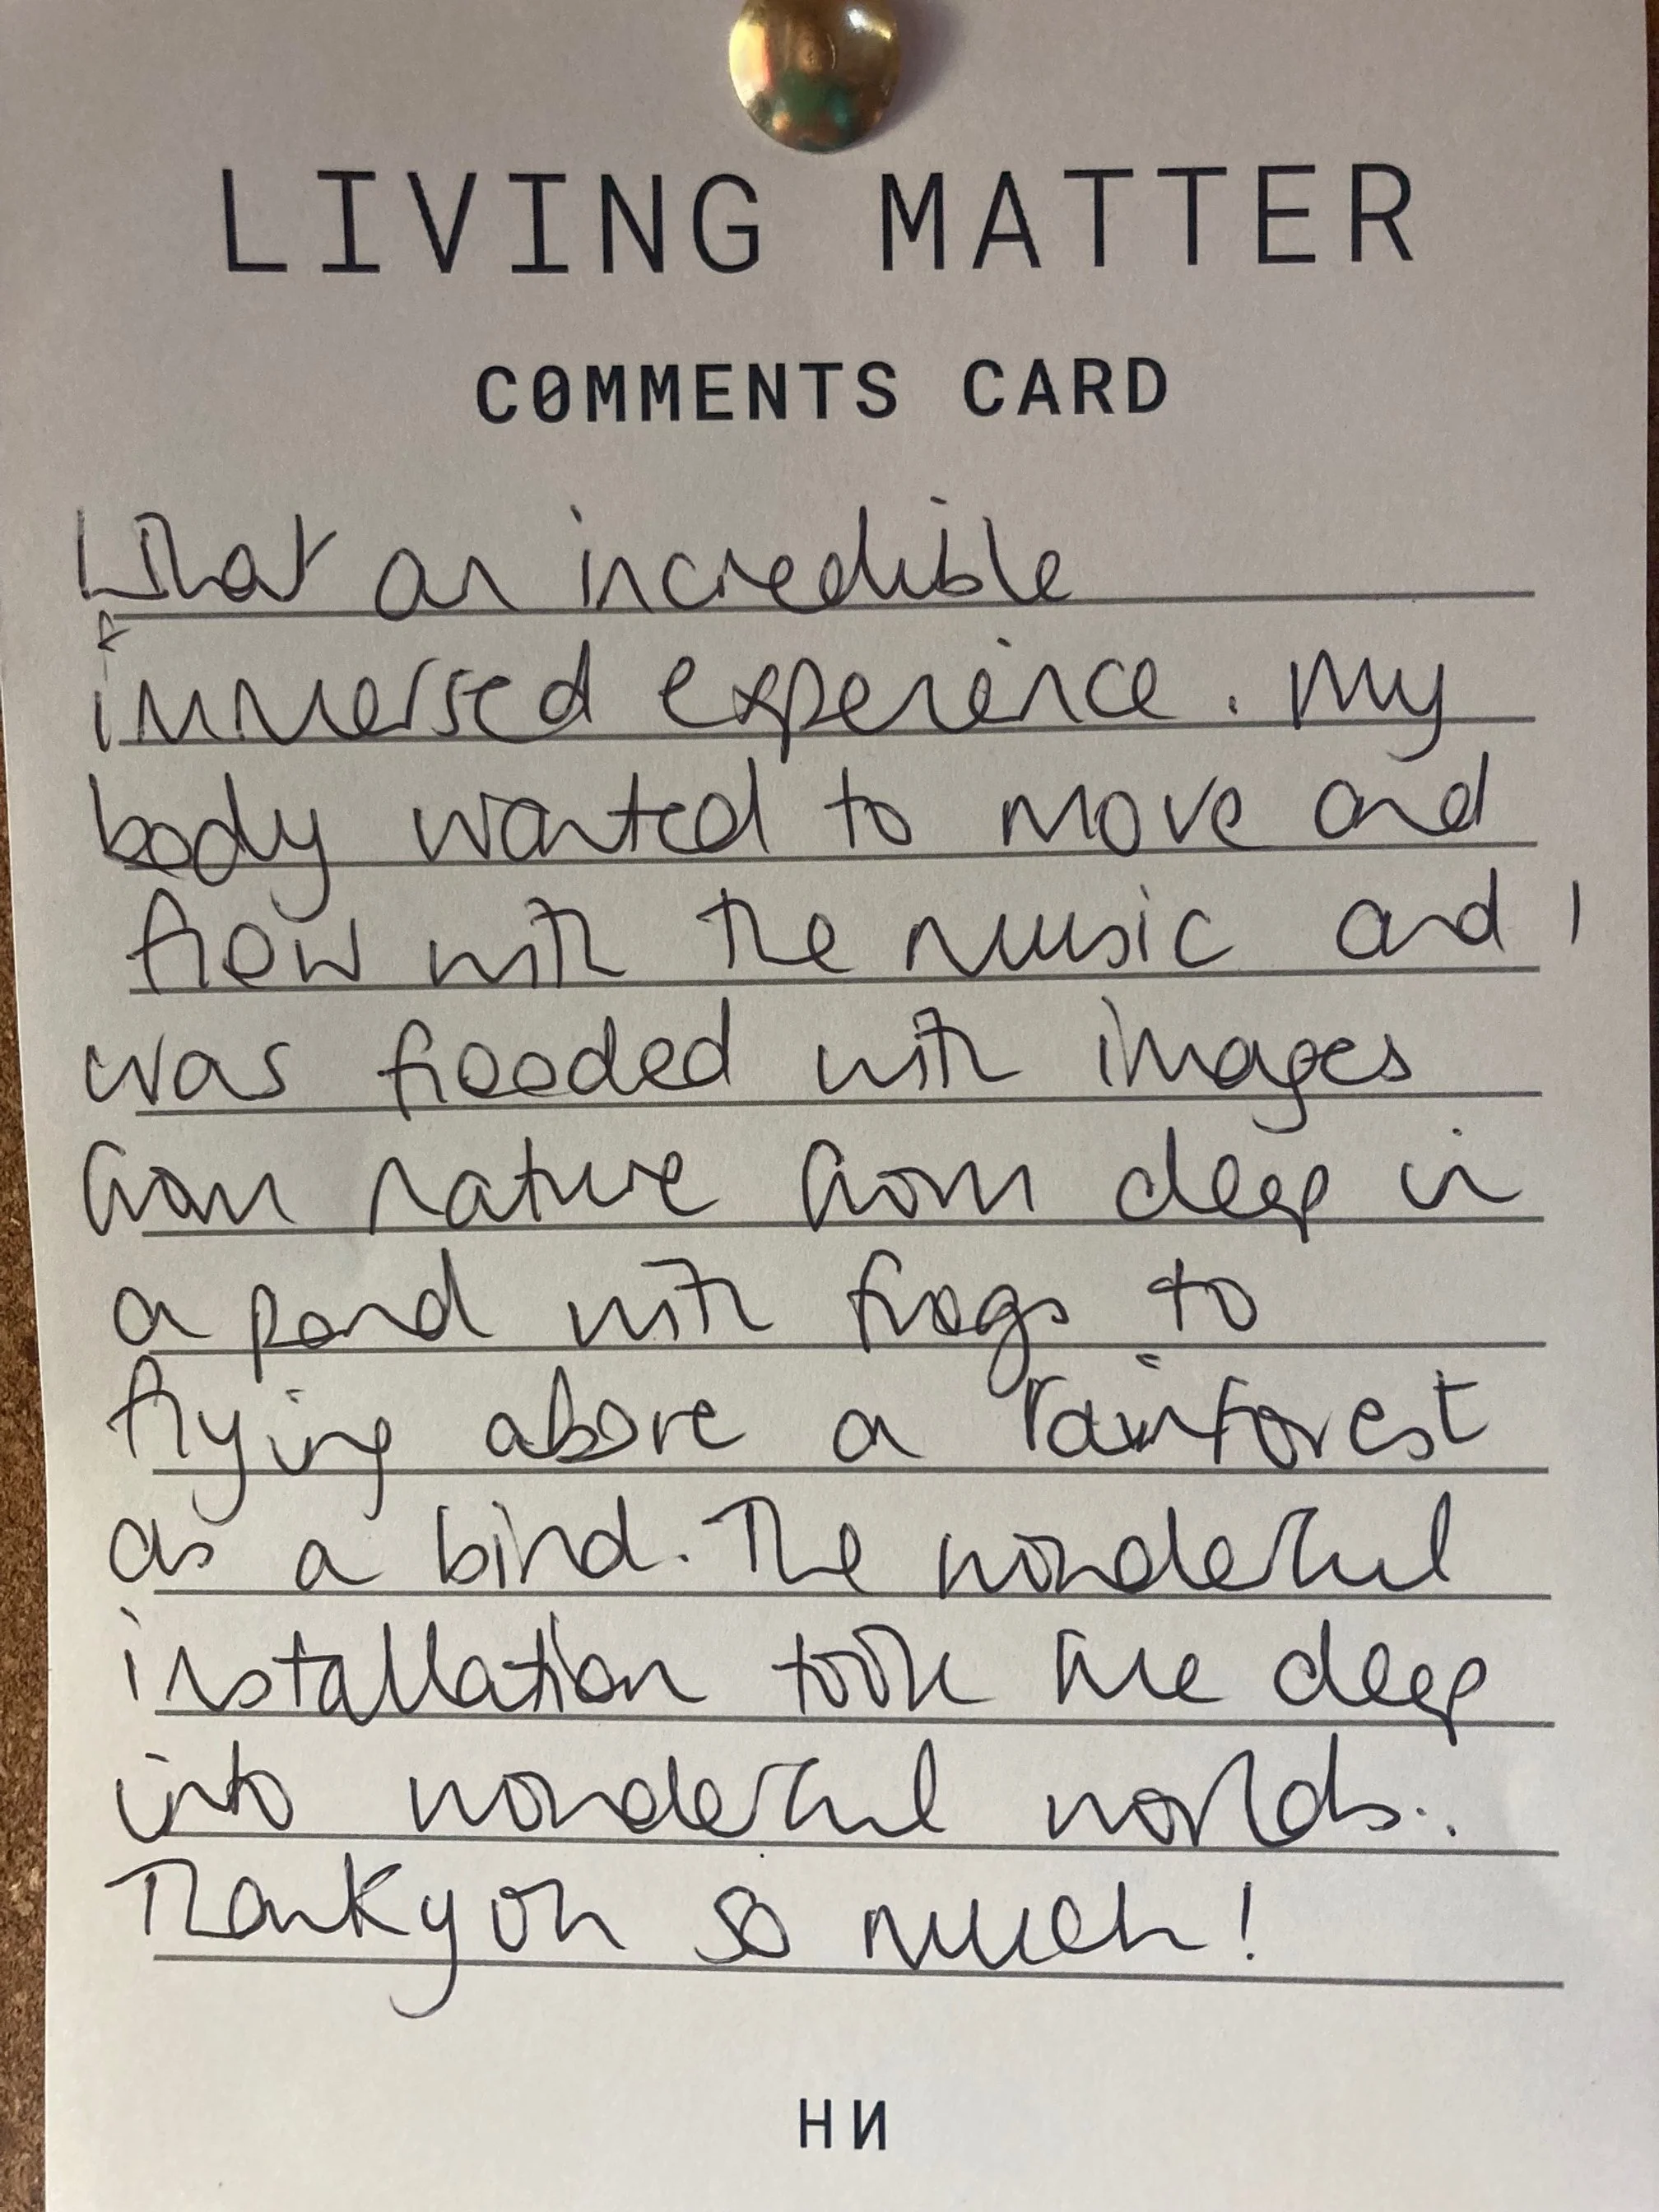 LIVING MATTER
COMMENTS CARD
What an incredible
immersed experience. My
body wanted to move and
flow with the music and I
was flooded with images
from nature from deep in
a pond with frogs to
flying above a rainforest
as a bird. The wonderful
installation took me deep
into wonderful worlds..
Thankyou so much!
HИ